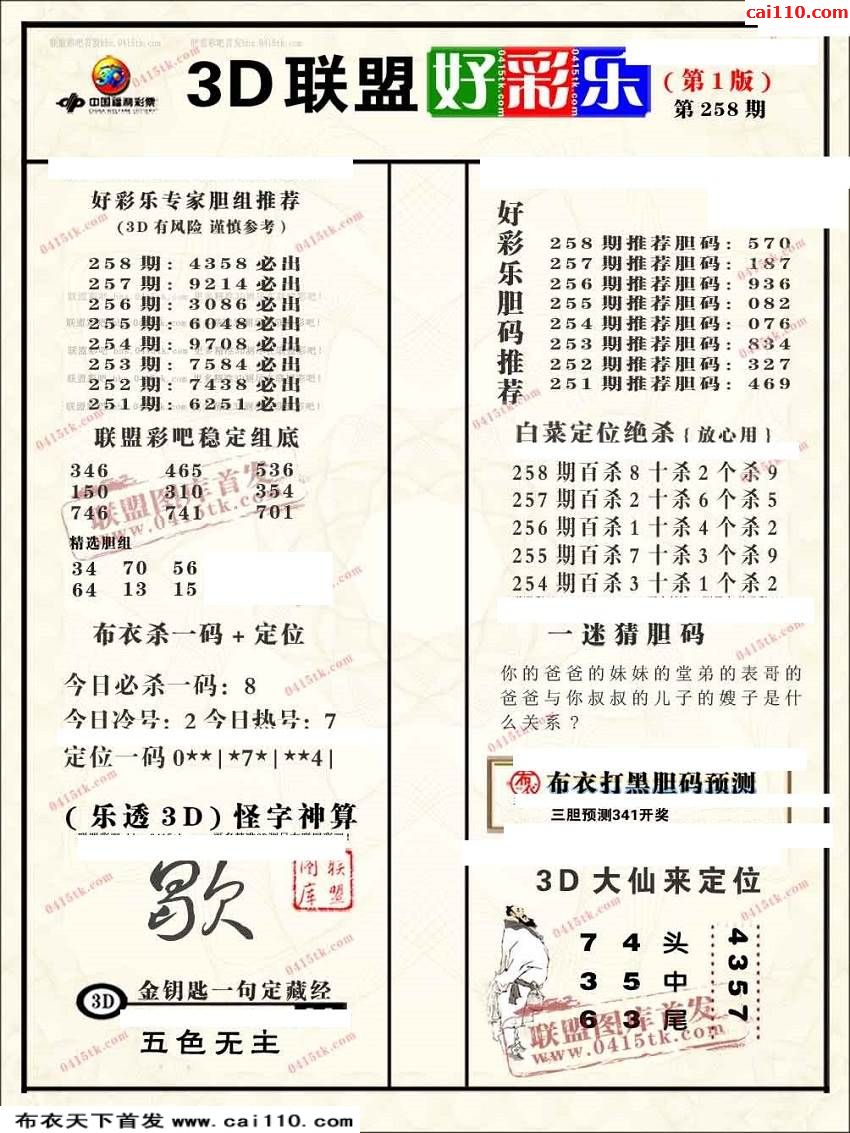 cai110.com
联盟彩吧首发bbs.0415tk.com 联盟彩吧首发bbs.0415tk.com
中国福利彩票
CHINA WELFARE LOTTERY
3D联盟好彩乐
0415tk.com 0415tk.com 0415tk.com
(第1版)
第258期
好彩乐专家胆组推荐
(3D有风险 谨慎参考)
258期:4358必出
257期:9214必出
256期:3086必出
255期:6048必出
254期:9708必出
253期:7584必出
252期:7438必出
251期:6251必出
联盟彩吧稳定组底
346 465 536
150 310 354
746 741 701
联盟图库首发
www.0415tk.com
精选胆组
34 70 56
64 13 15
布衣杀一码+定位
今日必杀一码:8
今日冷号:2今日热号:7
定位一码0**|*7*|**4|
(乐透3D)怪字神算
歇
联盟图库
3D 金钥匙一句定藏经
五色无主
好彩乐胆码推荐
258期推荐胆码:570
257期推荐胆码:187
256期推荐胆码:936
255期推荐胆码:082
254期推荐胆码:076
253期推荐胆码:834
252期推荐胆码:327
251期推荐胆码:469
白菜定位绝杀{放心用}
258期百杀8十杀2个杀9
257期百杀2十杀6个杀5
256期百杀1十杀4个杀2
255期百杀7十杀3个杀9
254期百杀3十杀1个杀2
一迷猜胆码
你的爸爸的妹妹的堂弟的表哥的
爸爸与你叔叔的儿子的嫂子是什
么关系?
布衣打黑胆码预测
三胆预测341开奖
3D大仙来定位
7 4 头
3 5 中
6 3 尾
4357
联盟图库首发
www.0415tk.com
布衣天下首发 www.cai110.com